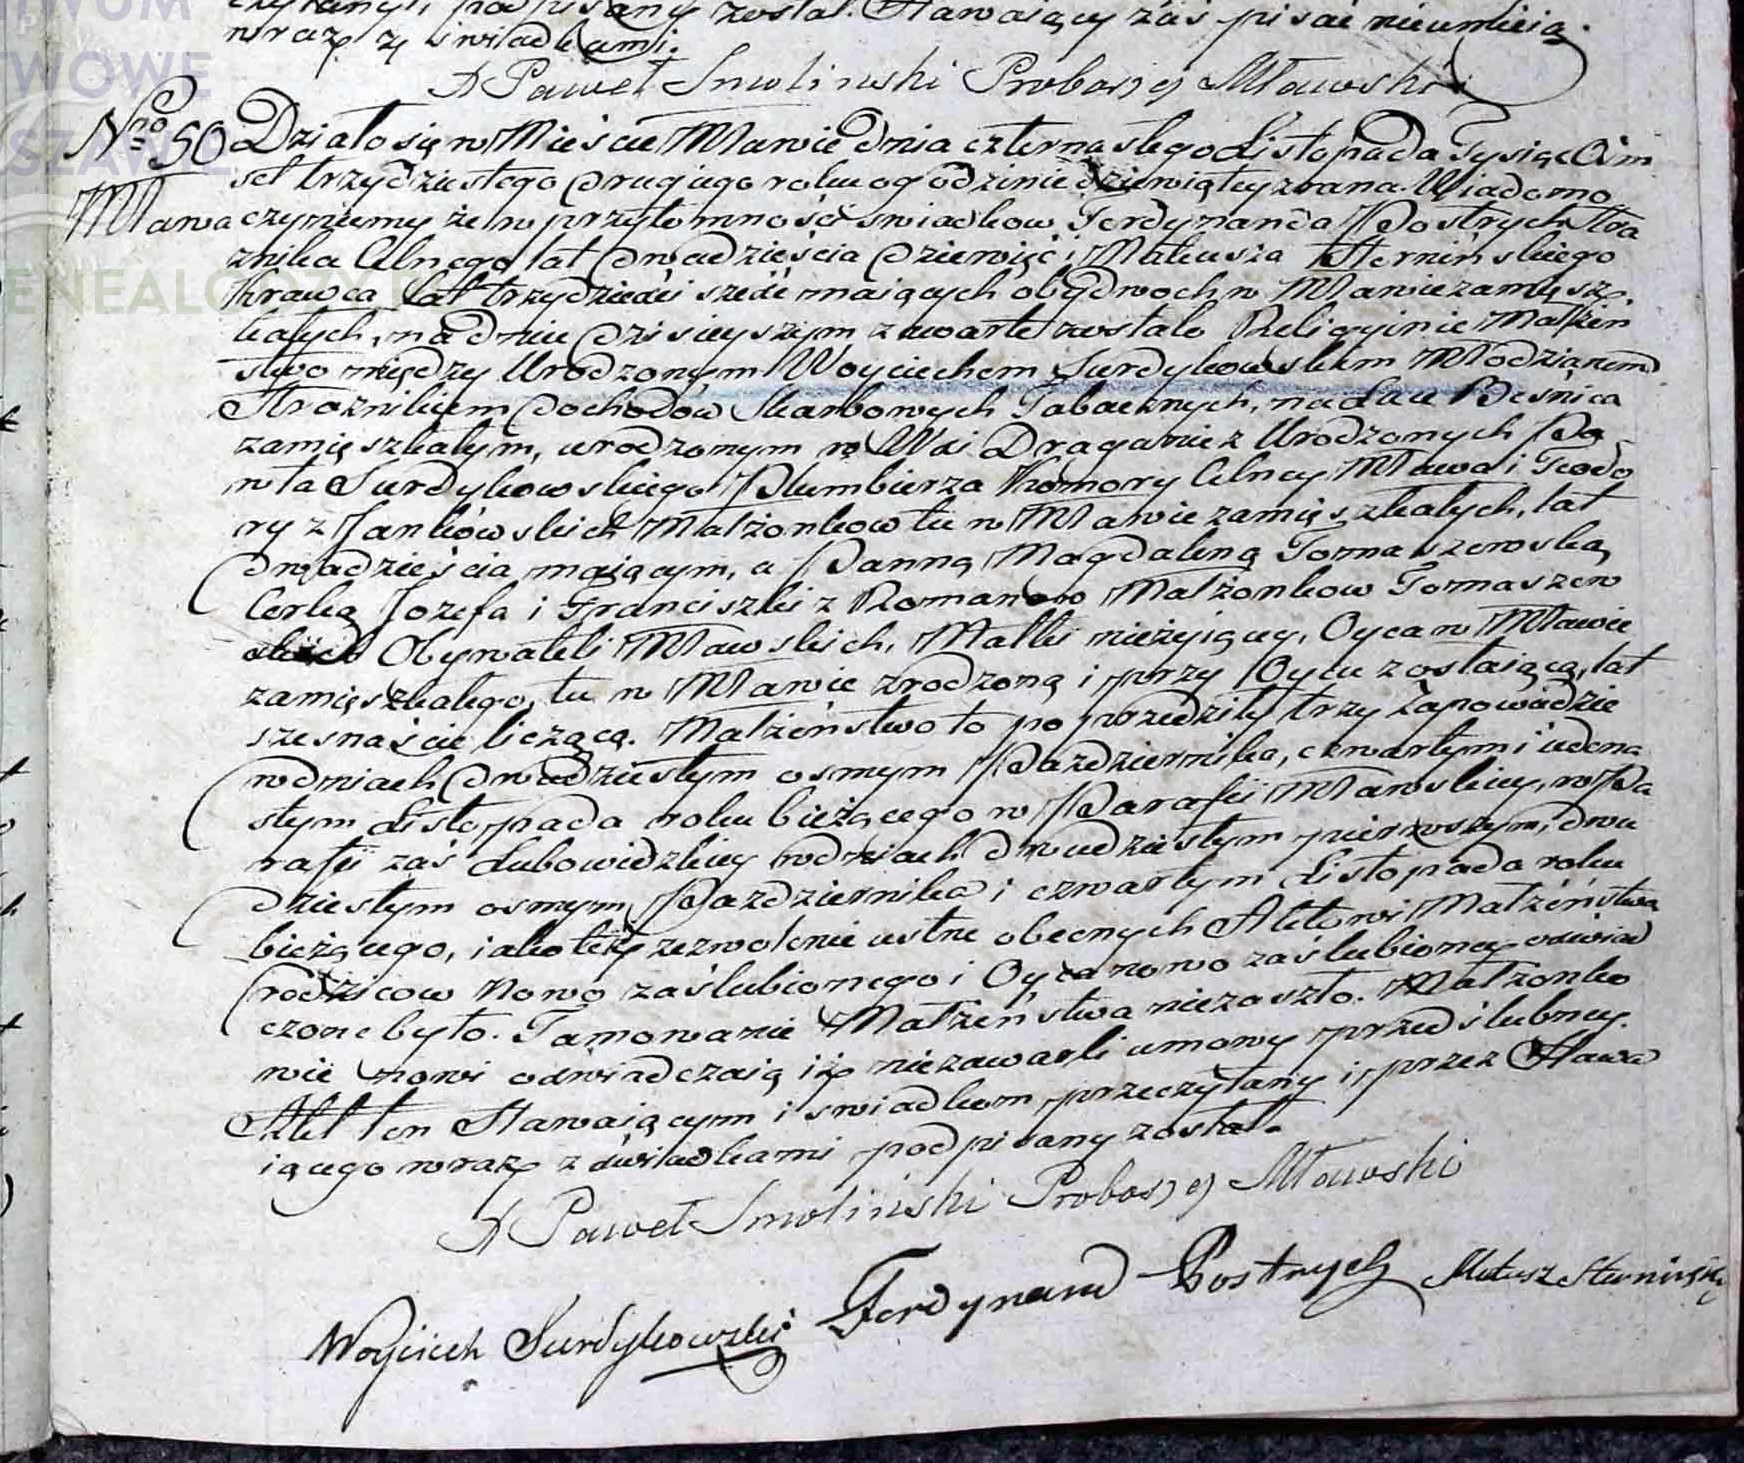 czytany, podpisany został. Stawaiący zaś pisać nieumieią
wraz z świadkami.
X Paweł Smolinski Proboszcz Mławski
Nro 50 Działo się w Mieście Mławie dnia czternastego Listopada Tysiąc Ośm
set trzydziestego drugiego roku o godzinie dziewiątey zrana. Wiadomo
Mława czyniemy że w przytomności swiadkow Ferdynanda Postrych Stra
znika Celnego lat dwadzieścia dziewięć i Mateusza Sternińskiego
krawca lat trzydzieści sześć maiących obydwoch w Mławie zamiesz,
kałych, na dniu dzisieyszym zawarte zostało Religiyinie Małżeń
stwo między Urodzonym Woyciechem Surdykowskim Młodzianem
Strażnikiem dochodów Skarbowych Tabacznych,
zamięszkałym, urodzonym w Wsi Draganie z Urodzonych Pa
wła Surdykowskiego Plumbierza Komory Celney Mława i Teodo
ry z Jankówskich Małżonkow tu w Mławie zamięszkałych, lat
dwadzieścia maiącym, a Panną Magdaleną Tomaszewską
Corką Jozefa i Franciszki z Romanow Małżonkow Tomaszew
skich Obywateli Mławskich, Matki nieżyiącey, Oyca w Mławie
zamięszkałego, tu w Mławie zrodzoną i przy Oycu zostaiącą, lat
szesnaście liczącą. Małżeństwo to poprzedziły trzy Zapowiedzie
w dniach dwudziestym osmym Października, czwartym i iedena
stym Listopada roku bieżącego w Parafii Mławskiey, w Pa
rafii zaś Lubowidzkiey w dniach dwudziestym pierwszym, dwu
dziestym osmym Października i czwartym Listopada roku
bieżącego, iako też zezwolenie ustne obecnych Aktowi Małżeństwa
rodzicow Nowo zaślubionego i Oyca nowo zaślubioney oświad
czone było. Tamowanie Małżeństwa niezaszło. Małżonko
wie nowi oświadczaią iż niezawarli umowy przedślubney.
Akt ten Stawaiącym i swiadkom przeczytany i przez Stawa
iącego wraz z świadkami podpisany został.
X Paweł Smoliński Proboszcz Mławski
Woyciech Surdykowski Ferdynand Postrych Mateusz Sterniński